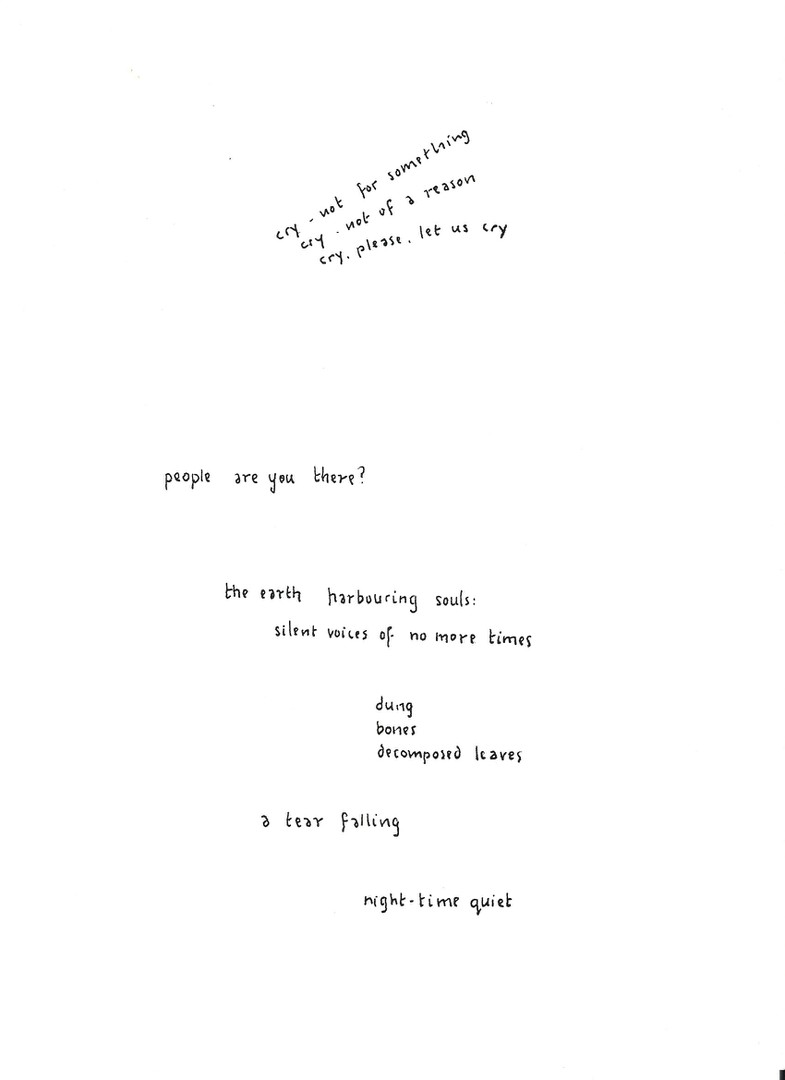 cry - not for something
cry - not of a reason
cry, please, let us cry
people are you there?
the earth harbouring souls:
silent voices of no more times
dung
bones
decomposed leaves
a tear falling
night-time quiet